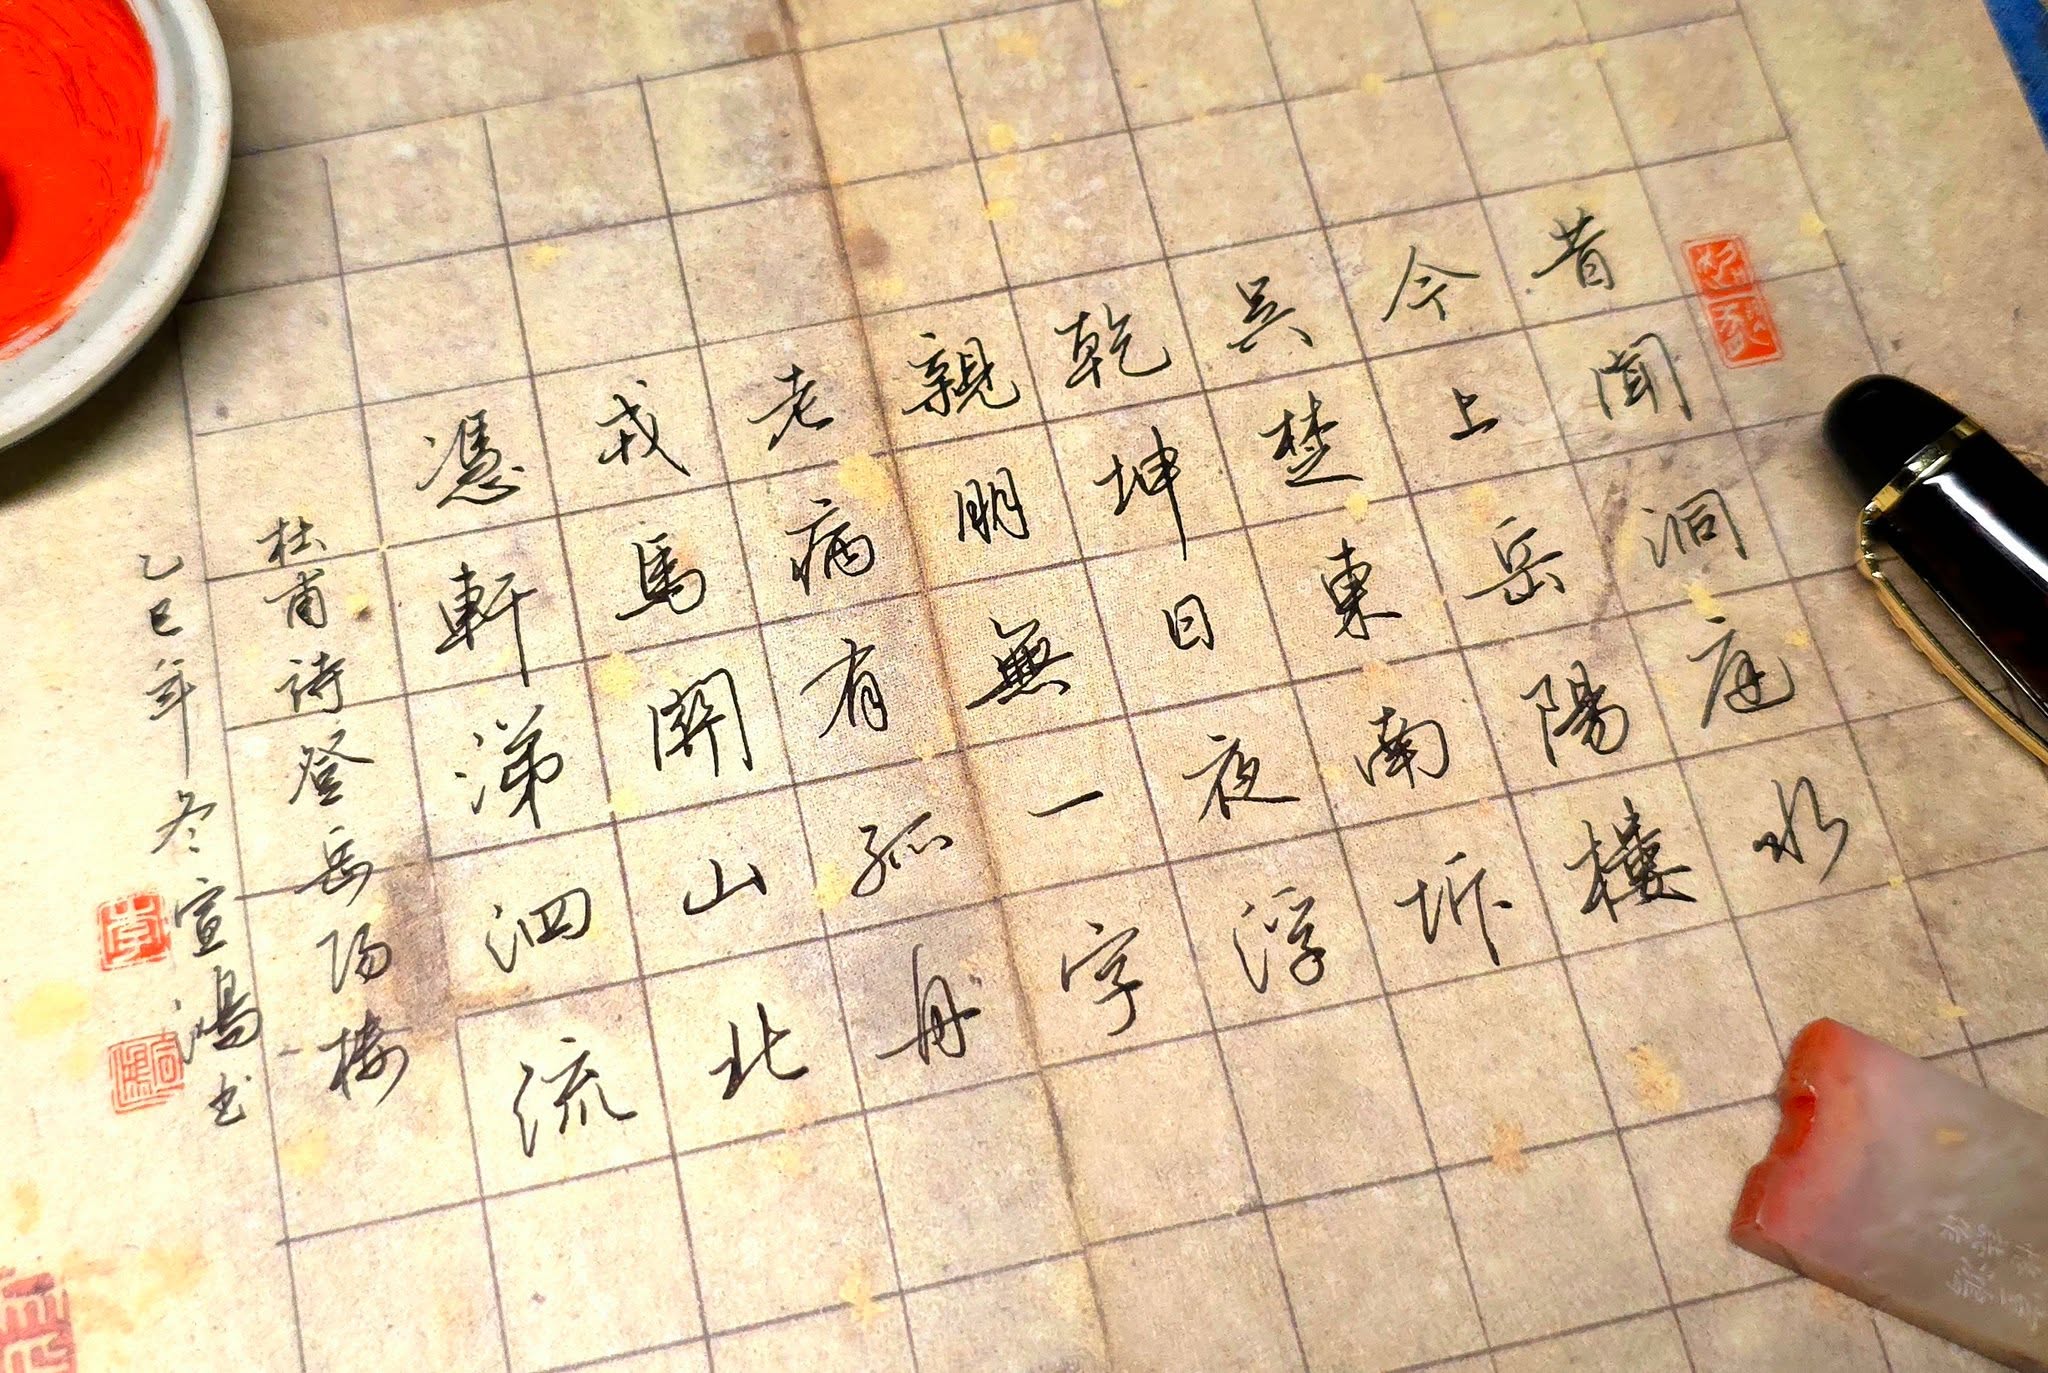 昔聞洞庭水
今上岳陽樓
吳楚東南坼
乾坤日夜浮
親朋無一字
老病有孤舟
戎馬關山北
憑軒涕泗流
杜甫诗登岳阳楼
乙巳年冬宣鴻书
李